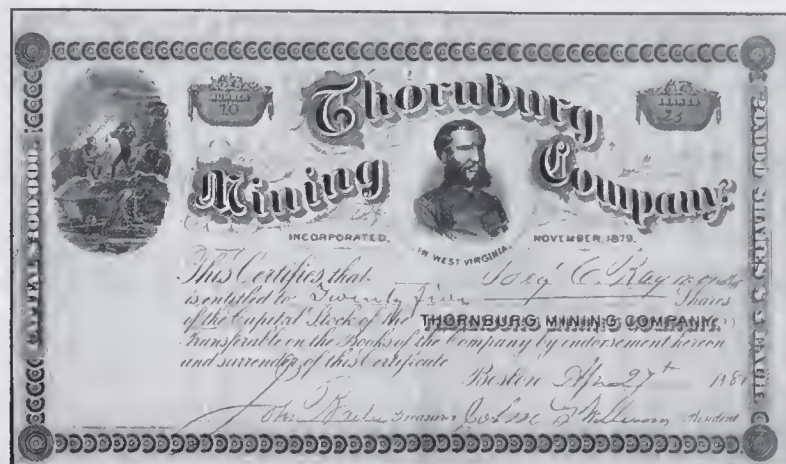 NUMBER
70
SHARES
25
Thornburg
Mining Company.
INCORPORATED, IN WEST VIRGINIA, NOVEMBER, 1879.
CAPITAL $100,000.
20,000 SHARES $5 EACH.
This Certifies that
is entitled to Twenty five Shares
of the Capital Stock of the THORNBURG MINING COMPANY.
Transferable on the Books of the Company by endorsement hereon
and surrender of this Certificate
Boston Apr 27th
John Treasurer President